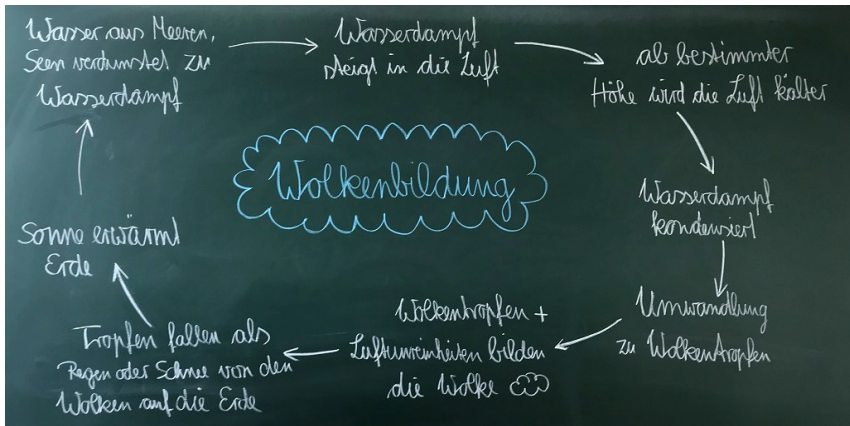 Wasser aus Meeren,
Seen verdunstet zu
Wasserdampf
Wasserdampf
steigt in die Luft
ab bestimmter
Höhe wird die Luft kälter
Wolkenbildung
Wasserdampf
kondensiert
Umwandlung
zu Wolkentropfen
Wolkentropfen +
Luftunreinheiten bilden
die Wolke
Tropfen fallen als
Regen oder Schnee von den
Wolken auf die Erde
Sonne erwärmt
Erde